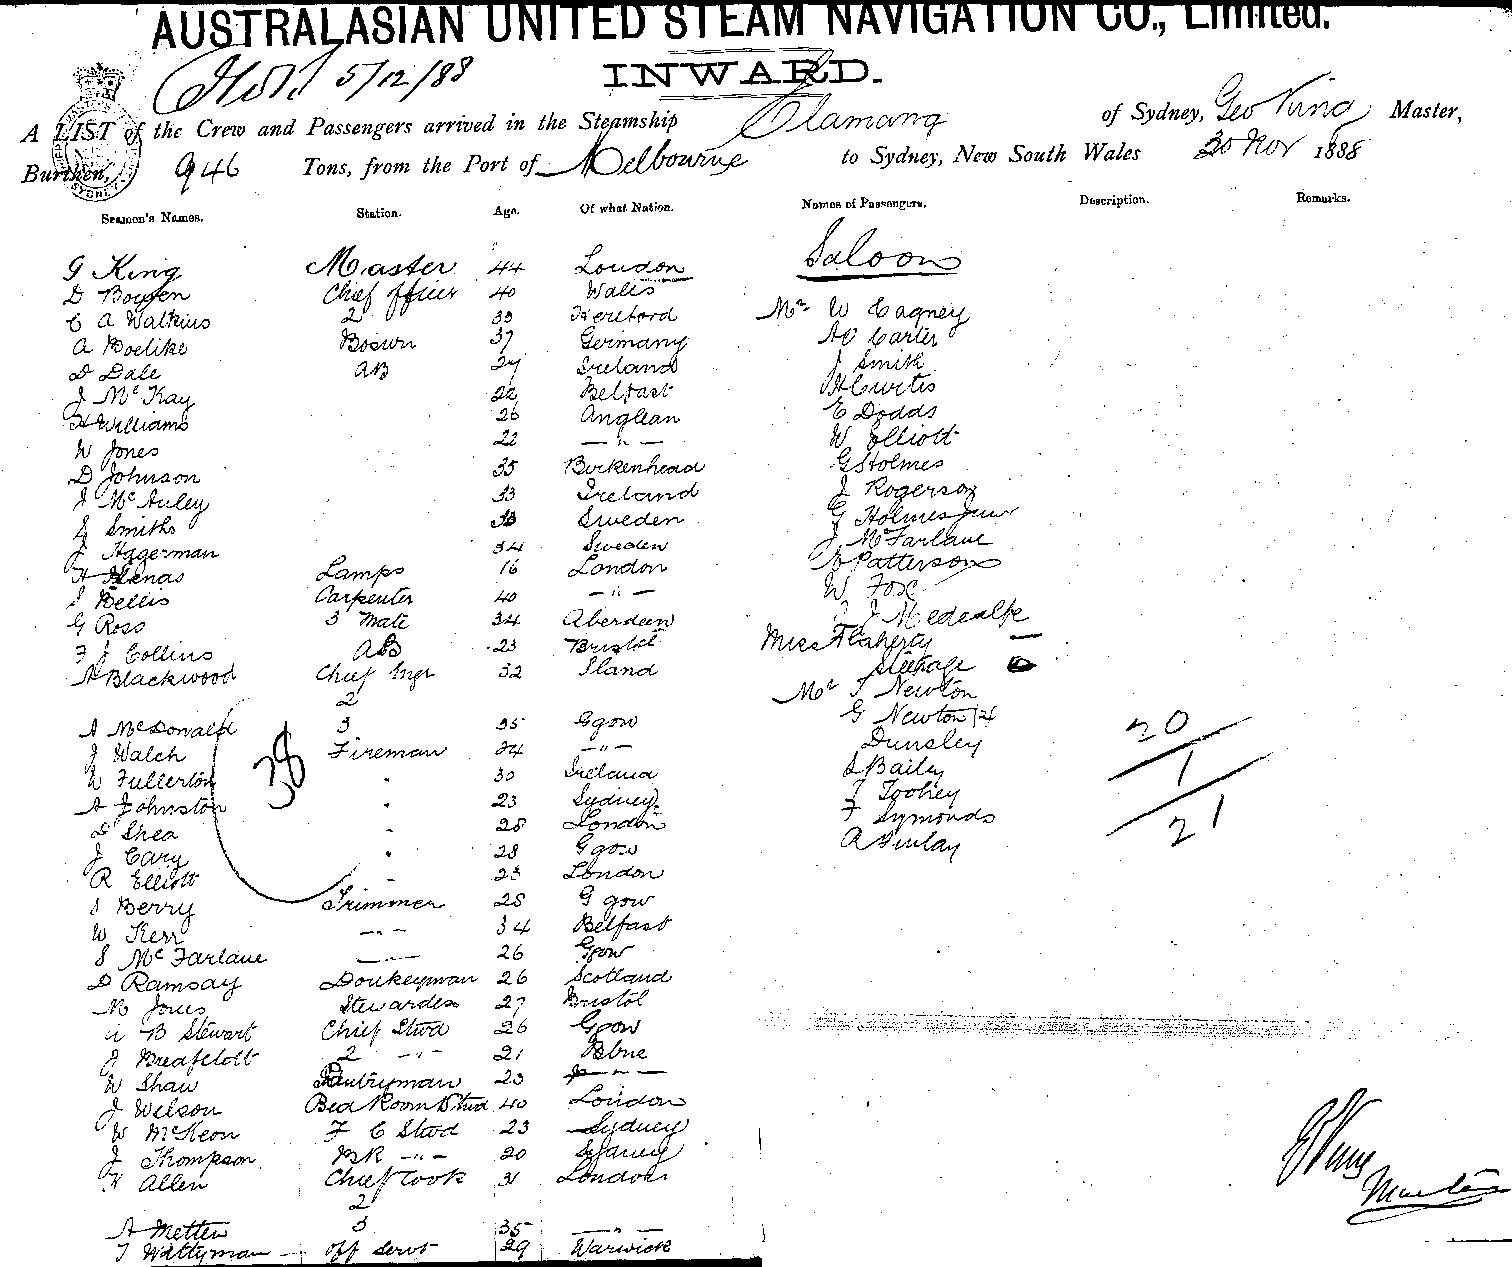 AUSTRALASIAN UNITED STEAM NAVIGATION CO., Limited.
5/12/88
INWARD.
A LIST of the Crew and Passengers arrived in the Steamship Elamang of Sydney, Geo King Master,
Burthen, 946 Tons, from the Port of Melbourne to Sydney, New South Wales 30 Nov 1888
Seamen's Names. Station. Age. Of what Nation. Names of Passengers. Description. Remarks.
G King Master 44 London
D Chief officer 40 Wales
C A Watkins 2 33 Hereford
A Boelike Boswn 37 Germany
D Dale AB 27 Ireland
J McKay 22 Belfast
H Williams 26 Anglean
W Jones 22 — " —
D Johnson 35 Birkenhead
J McAuley 33 Ireland
Smiths Sweden
J Hagerman 34 Sweden
H Lamps 16 London
Bellis Carpenter 40 — " —
G Ross 3 Mate 34 Aberdeen
F J Collins AB 23 Bristol
A Blackwood Chief Engr 32 Iland
2
A McDonald 3 35 Ggow
J Walch Fireman 24 — " —
W Fullerton " 30 Ireland
A Johnston " 23 Sydney
D Shea " 28 London
J Cary " 28 Ggow
R Elliott 23 London
Berry Trimmer 28 Ggow
W Kerr — " — 34 Belfast
S McFarlane — " — 26 Ggow
D Ramsay Donkeyman 26 Scotland
M Jones Stewardess 27 Bristol
A B Stewart Chief Stwd 26 Ggow
J 2 — " — 21 Bbne
W Shaw Pantryman 23 — " —
J Wilson Bed Room Stwd 40 London
W McKeon F C Stwd 23 Sydney
J Thompson BR — " — 20 Sydney
H Allen Chief Cook 31 London
2
A Metten 3 35 — " —
T Wattyman off servt 29 Warwick
38
Saloon
Mr W Cagney
AC Carter
J Smith
H Curtis
E Dodds
W Elliott
G Holmes
J Rogerson
G Holmes Junr
J McFarlane
Patterson
W Fox
J Medcalfe
Miss Flaherty
Steerage
Mr T Newton
G Newton 14
Dunsley
S Bailey
T Toohey
F Symonds
A Finlay
20
1
21
G King
Master